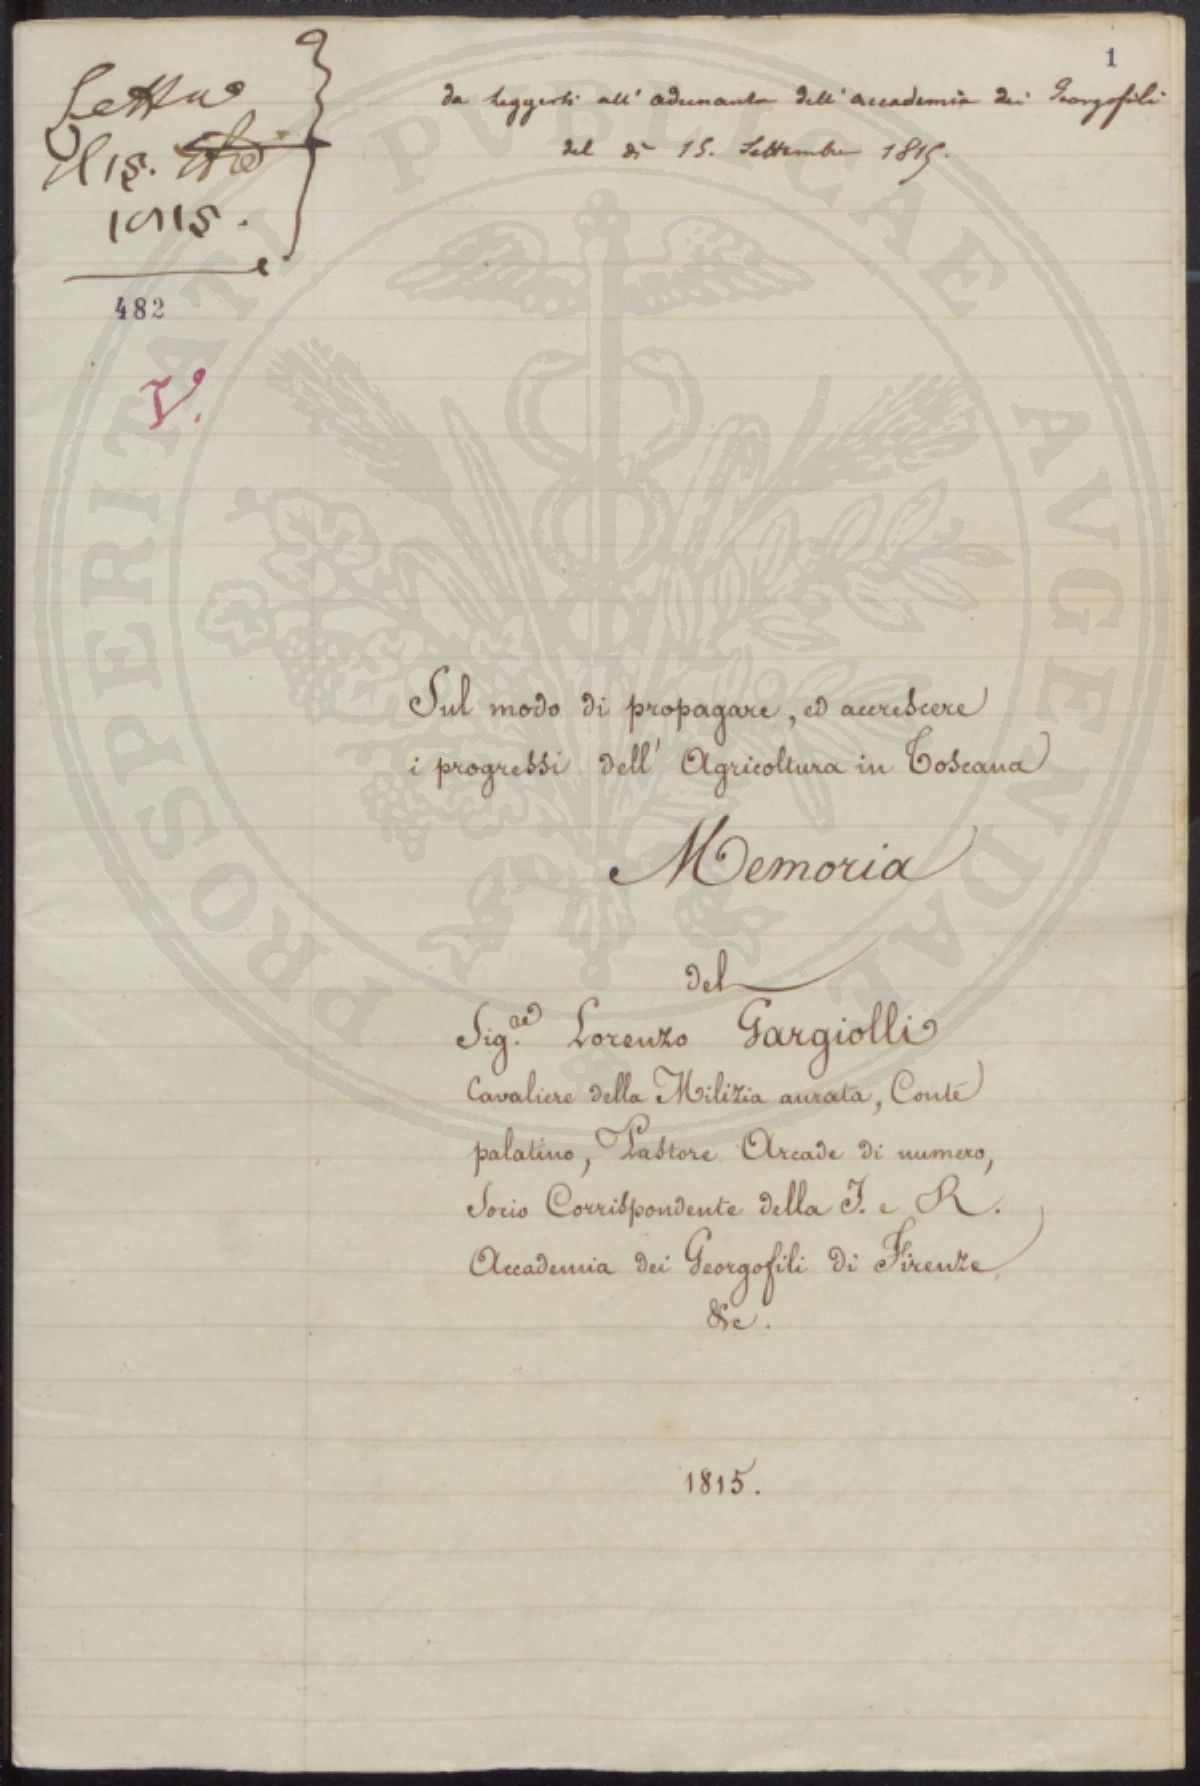 1
da leggersi all' adunanza dell' accademia dei Georgofili
del dì 15. Settembre 1815.
Letta
il 15. 7bre
1815.
482
V.
Sul modo di propagare, ed accrescere
i progressi dell' Agricoltura in Toscana
Memoria
del
Sig.re Lorenzo Gargiolli
Cavaliere della Milizia aurata, Conte
palatino, Pastore Arcade di numero,
Socio Corrispondente della I. e R.
Accademia dei Georgofili di Firenze
&c.
1815.
PROSPERITATI PVBLICAE AVGENDAE